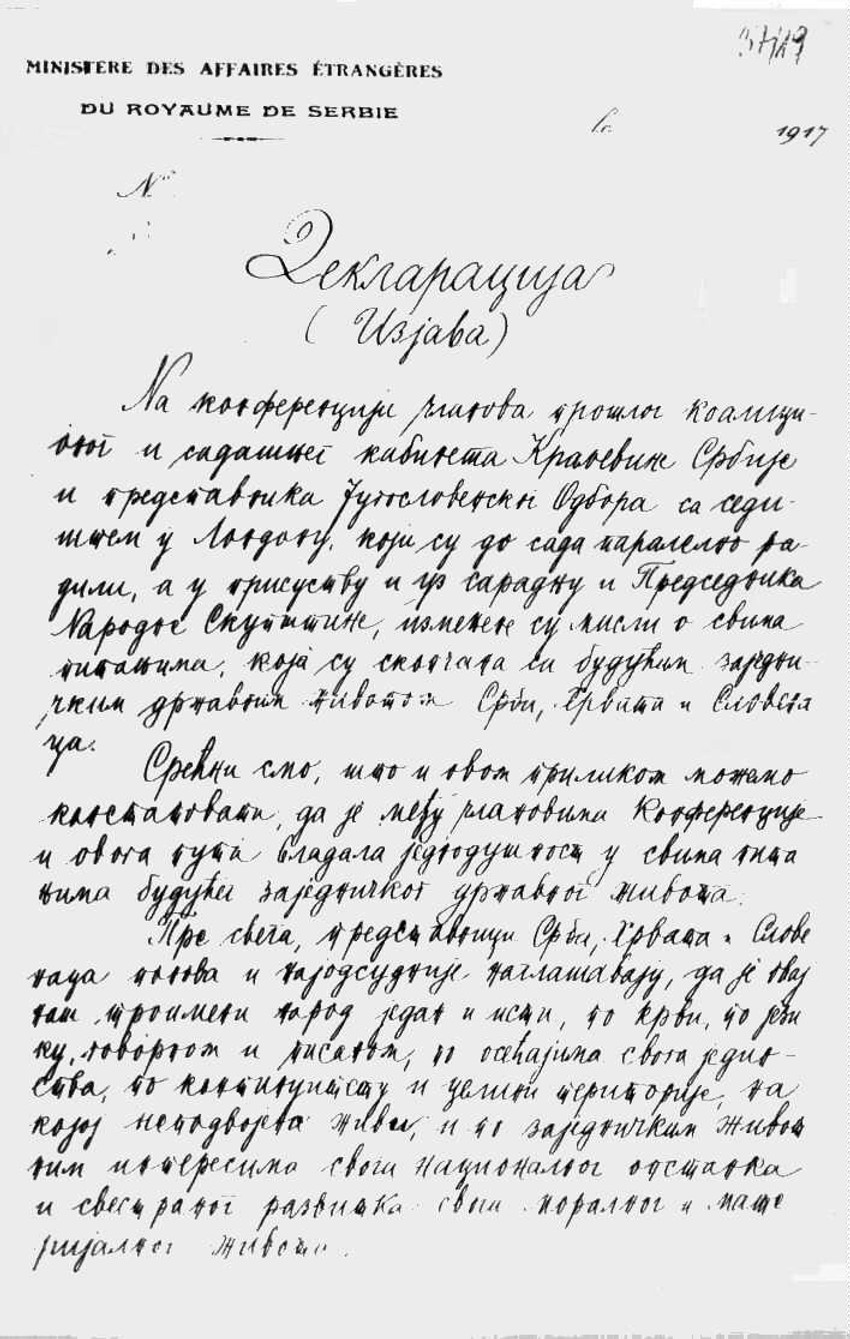 MINISTERE DES AFFAIRES ÉTRANGÈRES
DU ROYAUME DE SERBIE
le 1917
№
Декларација
(Изјава)
На конференцији чланова прошлог коалици-
оног и садашњег кабинета Краљевине Србије
и представника Југословенског Одбора са седи-
штем у Лондону, који су до сада паралелно ра-
дили, а у присуству и уз сарадњу и Председника
Народне Скупштине, измењене су мисли о свима
питањима, која су скопчана са будућим зајedни-
чким државним животом Срба, Хрвата и Словена
ца.
Срећни смо, што и овом приликом можемо
констатовати, да је међу члановима Конференције
и овога пута владала једнодушност у свима пита
њима будућег заједничког државног живота.
Пре свега, представници Срба, Хрвата и Слове
наца понова и најодсудније наглашавају, да је овај
наш троимени народ један и исти, по крви, по јези
ку, говорном и писаном, по осећајима свога једин-
ства, по континуитету и целини територије, на
којој неподвојено живи, и по заједничким живот
ним интересима свога националног опстанка
и свестраног развитка свога моралног и мате
ријалног живота.